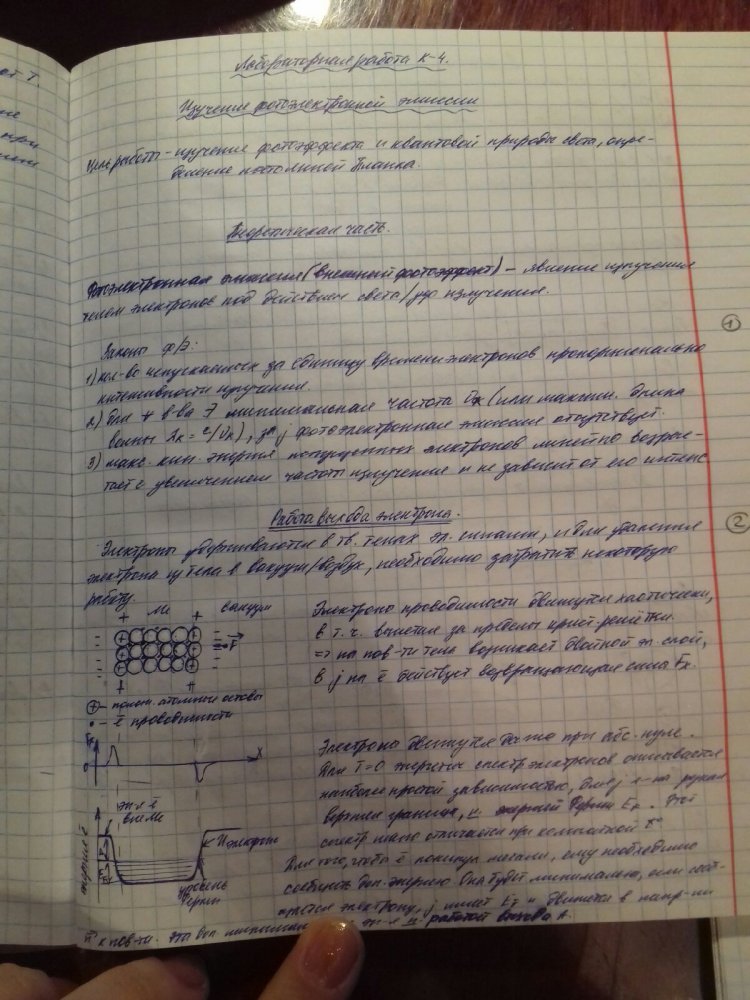 Лабораторная работа К-4.
Изучение фотоэлектронной эмиссии
Цель работы - изучение фотоэффекта и квантовой природы света, опре-
деление постоянной Планка.
Теоретическая часть.
Фотоэлектронная эмиссия (внешний фотоэффект) - явление испускания
телом электронов под действием света/ излучения.
Законы ф/э:
1) кол-во испускаемых за единицу времени электронов пропорционально
интенсивности излучения.
2) для ∀ в-ва ∃ минимальная частота νк (или максим. длина
волны λк = c/νк), за j фотоэлектронная эмиссия отсутствует.
3) макс. кин. энергия электронов линейно возрас-
тает с увеличением частоты излучения и не зависит от его интенс
Работа выхода электрона.
Электроны удерживаются в тв. телах эл. силами, и для удаления
электрона из тела в вакуум/воздух, необходимо затратить некоторую
работу.
Ме вакуум
F
⊕ - полож. атомные остовы
• - ē проводимости
Электроны проводимости движутся хаотически,
в т.ч. вылетая за пределы крист. решётки.
=> на пов-ти тела возникает двойной эл. слой,
в j на ē действует возвращающая сила Fx.
0 x
Электроны движутся даже при абс. нуле.
Для T=0 энерг. спектр электронов описывается
наиболее простой зависимостью, для j
верхняя граница, энергией Ферми EF. Этот
спектр мало отличается при комнатной T°
эн-я ē
вне Ме
энергия ē
уровень
Ферми
Для того, чтобы ē покинул металл, ему необходимо
сообщить доп. энергию. Она будет минимальна, если
электрону, j имеет EF и движется в напр-ии
к пов-ти. Эта доп. эн-я работой выхода A.
1
2